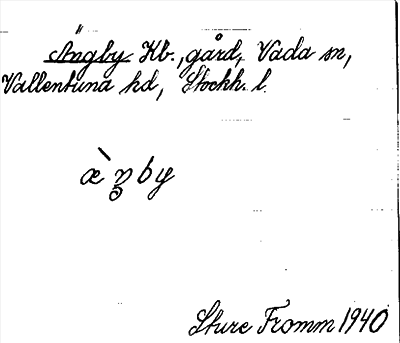 Ängby Kb., gård, Vada sn,
Vallentuna hd, Stockh. l.
æ̀ŋby
Sture Fromm 1940